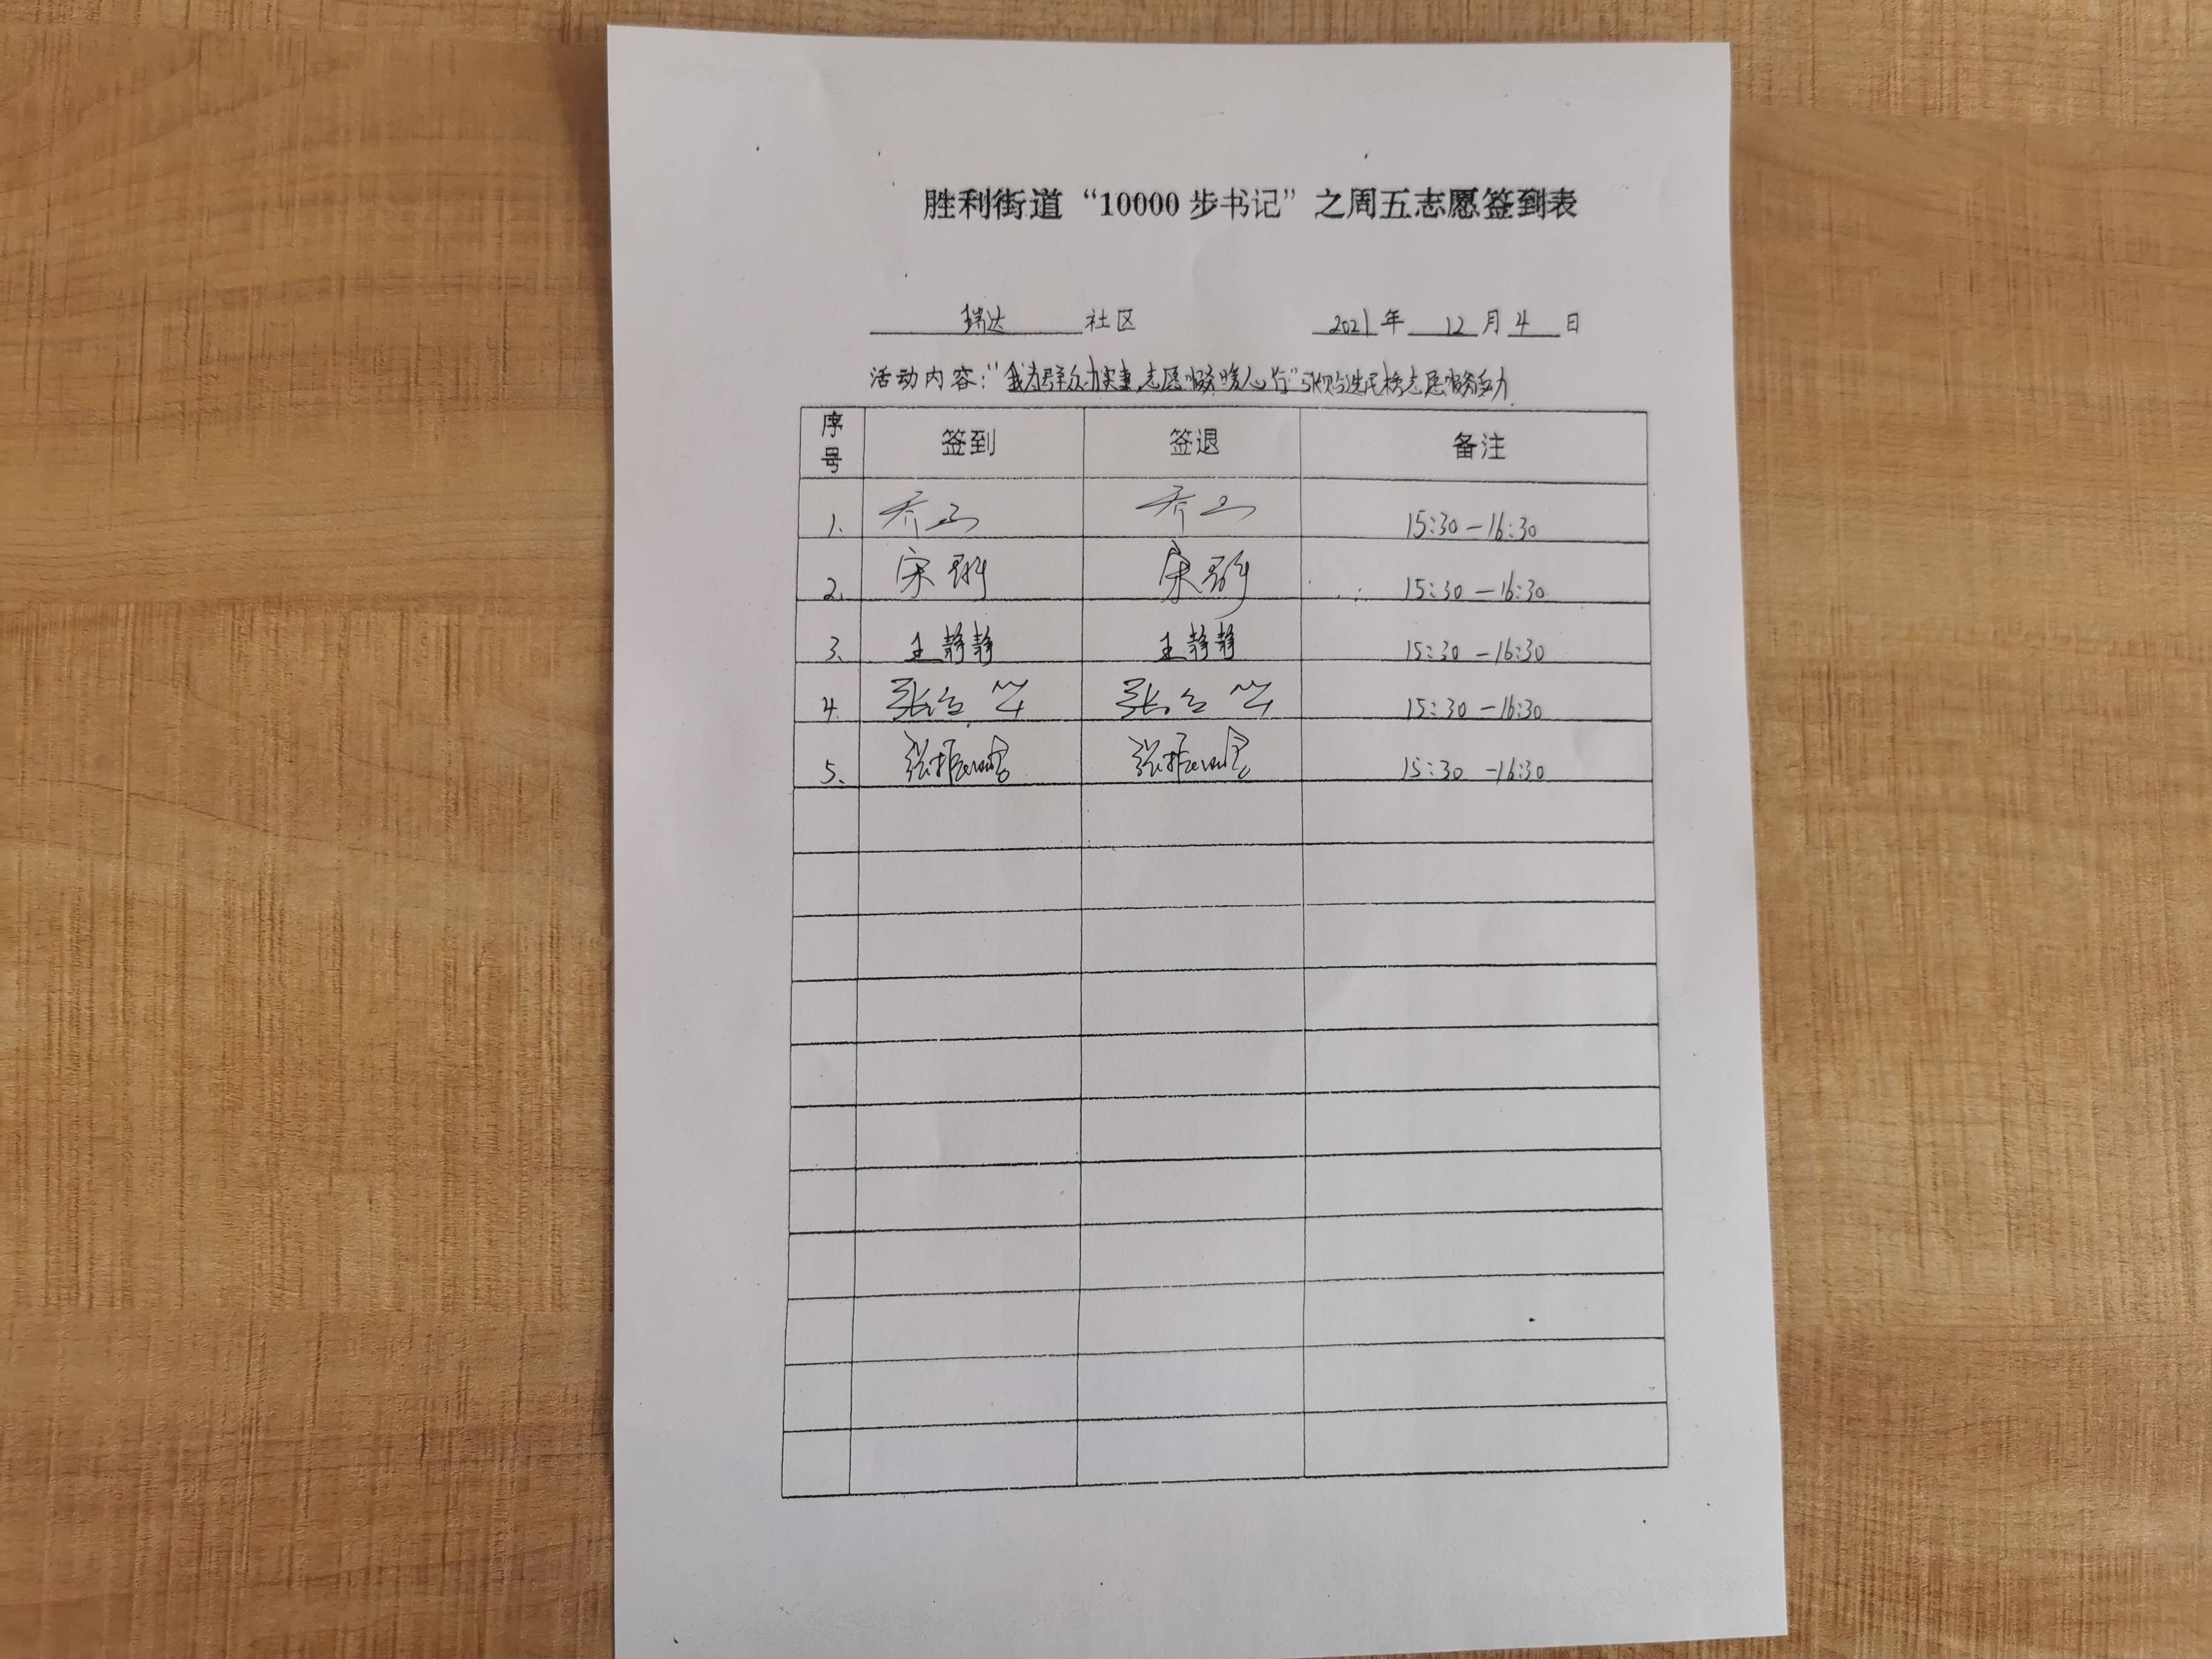 胜利街道“10000步书记”之周五志愿签到表
瑞达 社区 2021年 12月 4日
活动内容:“我为群众办实事 志愿服务暖人心行” 志愿服务活动
序号 签到 签退 备注
1. 15:30-16:30
2. 宋 宋 15:30-16:30
3、 王静静 王静静 15:30-16:30
4. 张 张 15:30-16:30
5、 张振 张振 15:30-16:30